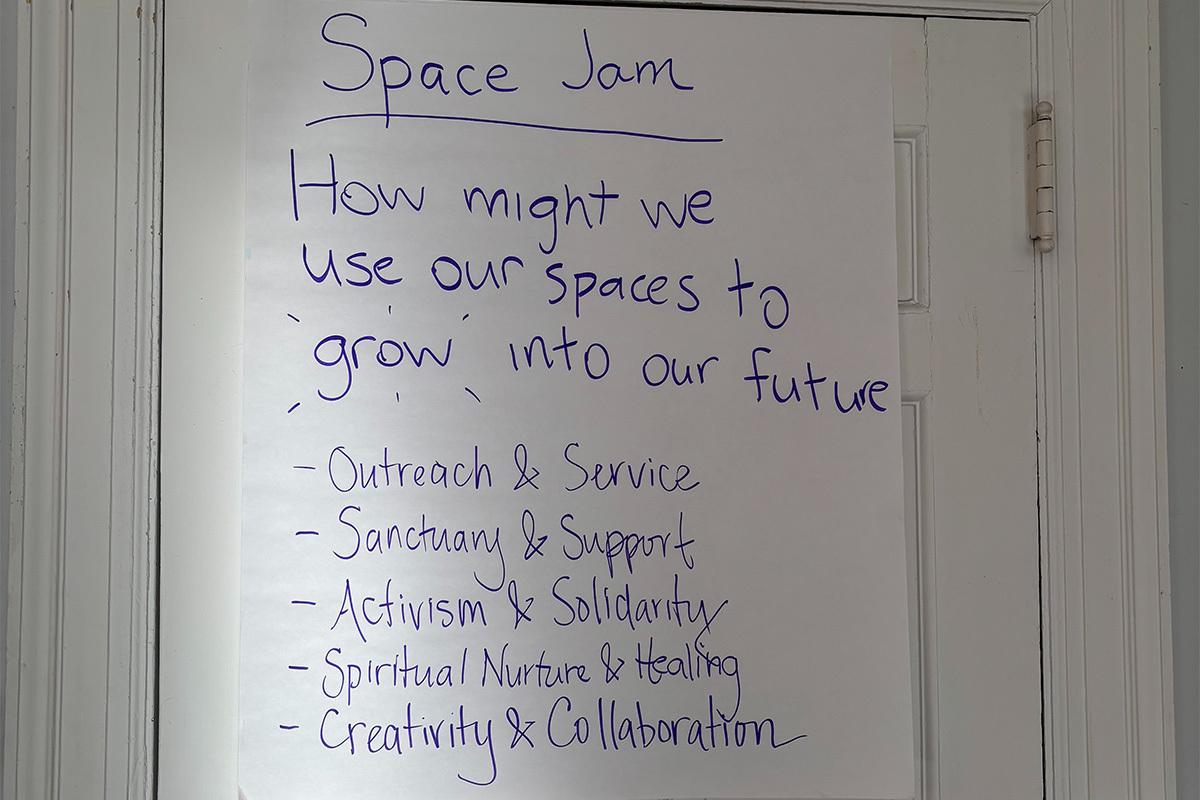 Space Jam
How might we
use our spaces to
grow into our future
- Outreach & Service
- Sanctuary & Support
- Activism & Solidarity
- Spiritual Nurture & Healing
- Creativity & Collaboration